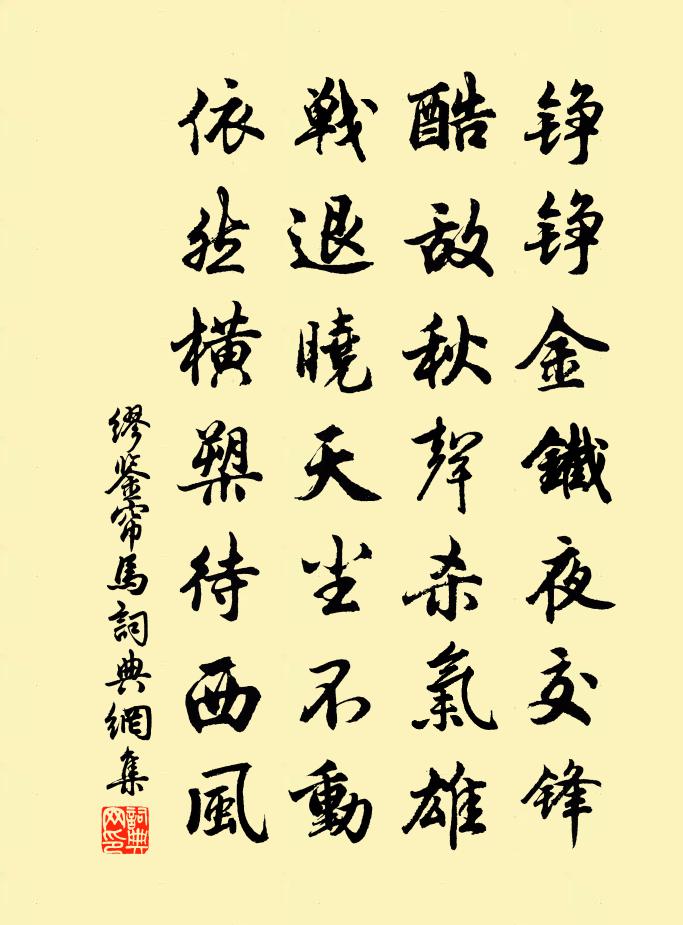 铮铮金鐵夜交锋
酷敌秋聲杀氣雄
戰退曉天尘不動
依然橫槊待西風
繆鉴帘馬詞典網集
詞典网印